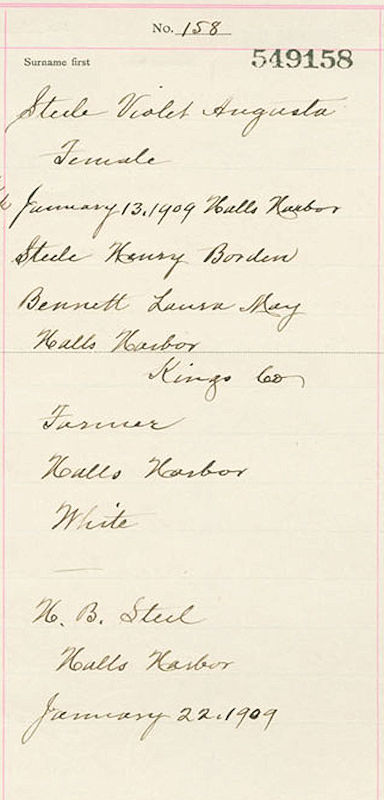 No. 158
Surname first
549158
Steele Violet Augusta
Female
January 13. 1909 Halls Harbor
Steele Henry Borden
Bennett Laura May
Halls Harbor
Kings Co
Farmer
Halls Harbor
White
H. B. Steel
Halls Harbor
January 22. 1909